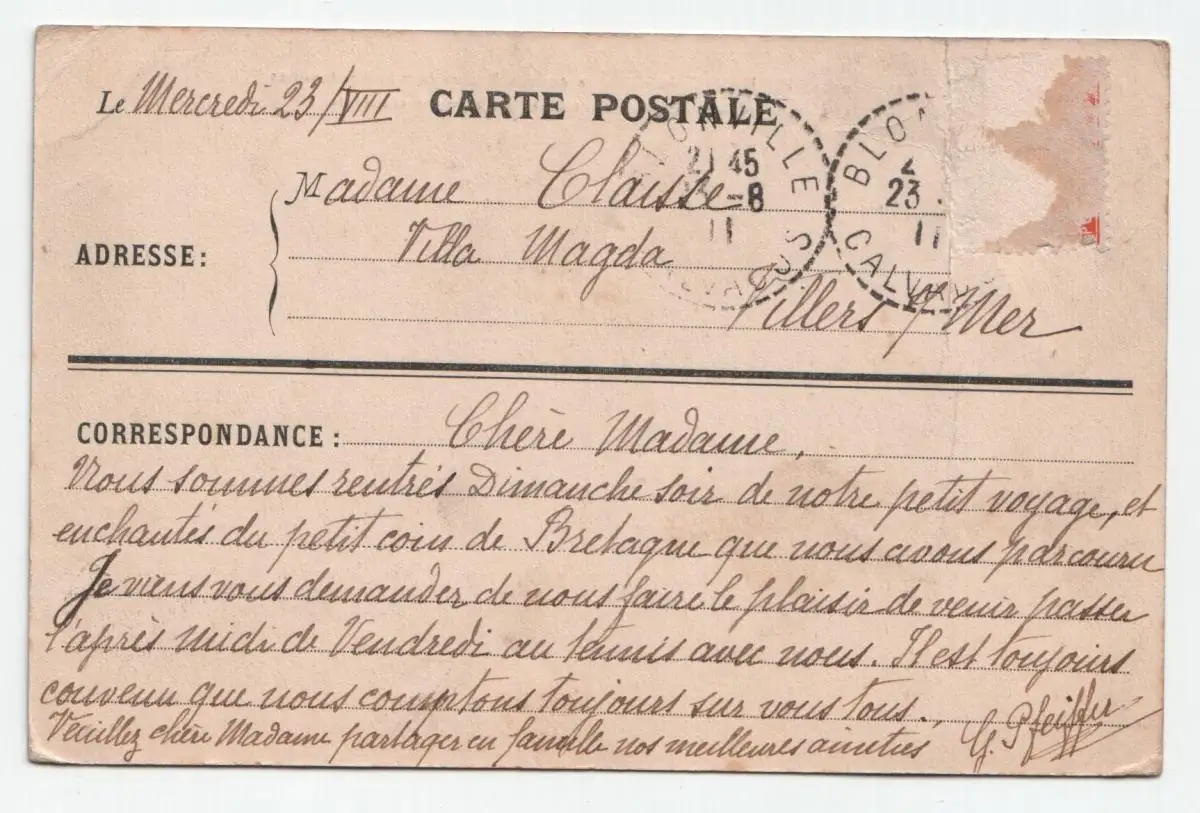 Le Mercredi 23/VIII CARTE POSTALE
LONVILLE
21 45
-8
11
CALVADOS
BLON
2
23
11
CALVADOS
Madame Claisse
ADRESSE:
Villa Magda
Villers s/ Mer
CORRESPONDANCE: Chère Madame,
Nous sommes rentrés Dimanche soir de notre petit voyage, et
enchantés du petit coin de Bretagne que nous avons parcouru
Je viens vous demander de nous faire le plaisir de venir passer
l'après midi de Vendredi au tennis avec nous. Il est toujours
convenu que nous comptons toujours sur vous tous.
Veuillez chère Madame partager en famille nos meilleures amitiés G. Pfeiffer